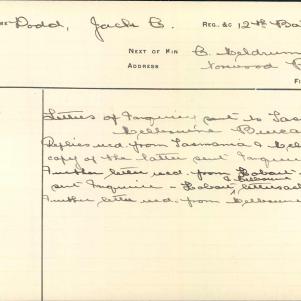 Dodd, Jack C. REG. &c 12th Ba
NEXT OF KIN C. Meldrum
ADDRESS Norwood
Letters of Inquiry sent to Tas
Melbourne Bureau
Replies recd. from Tasmania & Mel
copy of the latter sent Inquir
Further letter recd. from Hobart
& Melbourne
sent Inquirer - Hobart letters ad
Further letter recd. from Melbourne